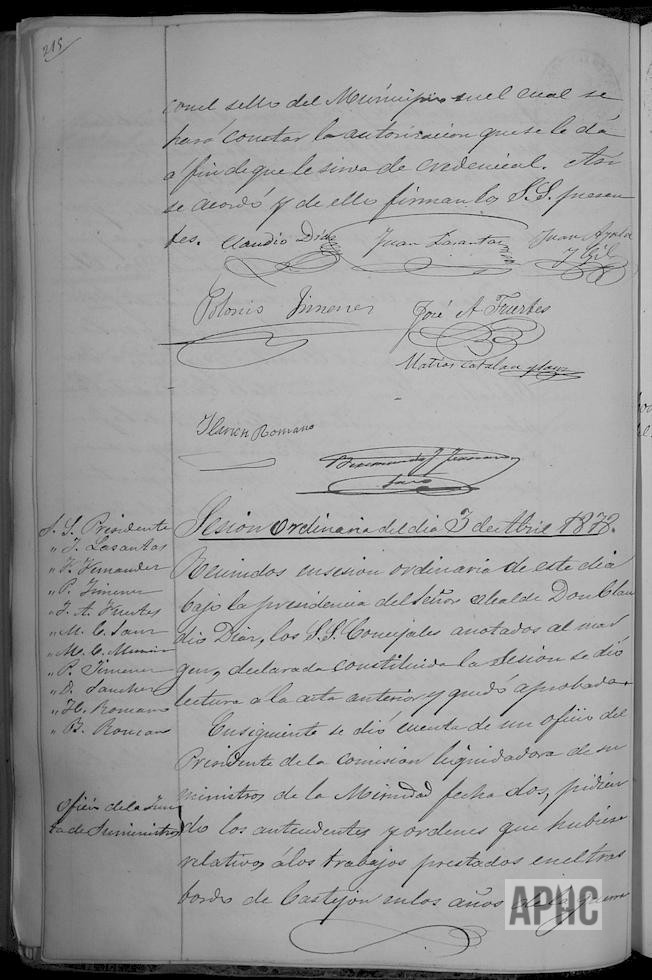 215
con el sello del Municipio en el cual se
hará constar la autorizacion que se le dá
á fin de que le sirva de credencial. Asi
se acordó y de ello firman los S.S. presen
tes. Claudio Diaz Juan Lasantas Juan Ayala
y Gil
Polonio Jimenez José A Fuertes
Matias Catalan y Sanz
Ilarion Romano
S. S. Presidente
" J. Lasantas
" F. Fernandez
" P. Jimenez
" J. A. Fuertes
" M. C. Sanz
" M. C.
" P. Jimenez
" D. Sanchez
" H. Romano
" B. Romano
Sesion Ordinaria del dia 3 de Abril 1878.
Reunidos en sesion ordinaria de este dia
bajo la presidencia del Señor Alcalde Don Clau
dio Diaz, los S.S. Concejales anotados al mar
gen, declarada constituida la Sesion se dió
lectura a la acta anterior y quedo aprobada.
En siguiente se dió cuenta de un oficio del
Presidente de la comision liquidadora de su
ministros de la Merindad fecha dos, pidien
do los antecedentes y ordenes que hubiere
relativos á los trabajos prestados en el tras
bordo de Castejon en los años de la guerra
Oficio de la Jun
ta de Suministros
APHC